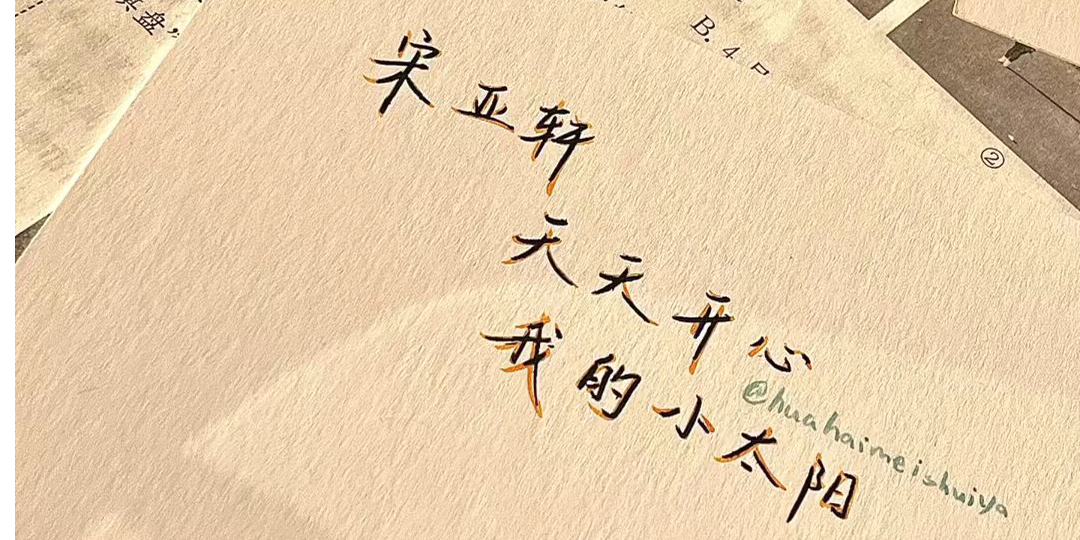 棋盘，
B. 4
②
宋亚轩
天天开心
我的小太阳
@huahaimeishuiya